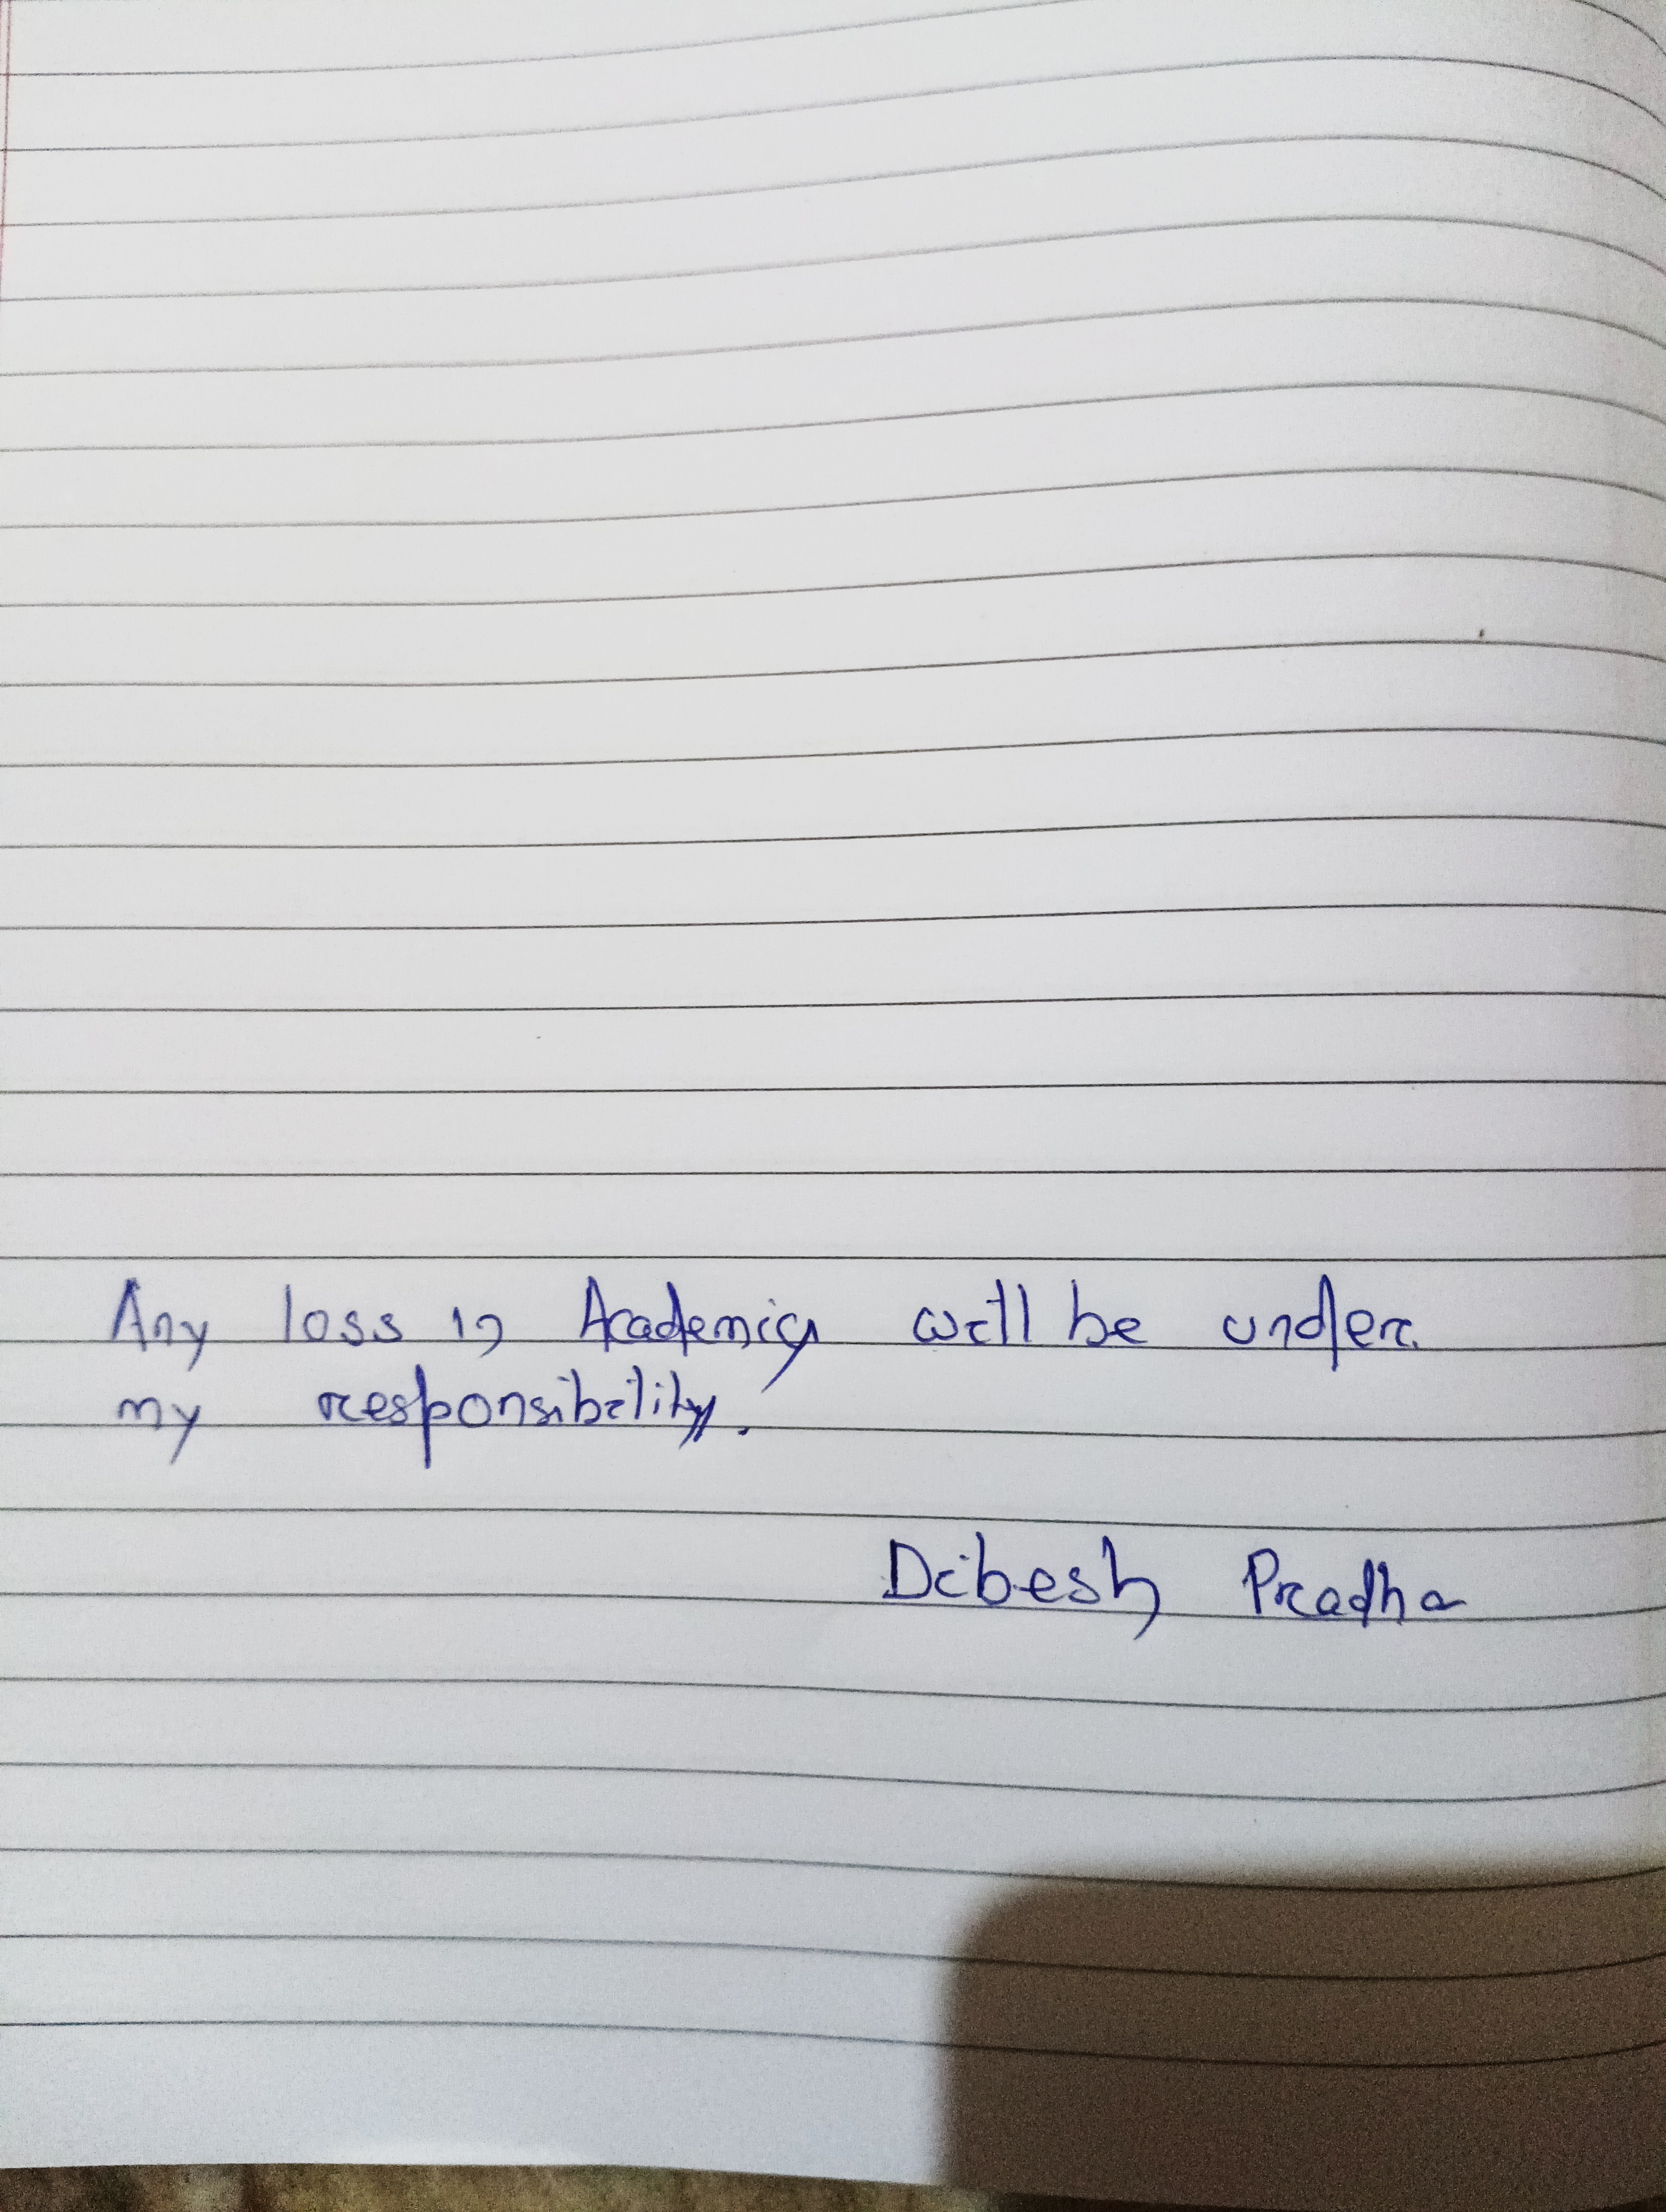 Any loss in Academics will be under
my responsibility.
Dibesh Pradhan